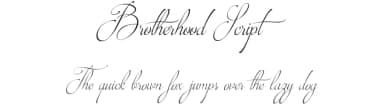 Brotherhood Script
The quick brown fox jumps over the lazy dog